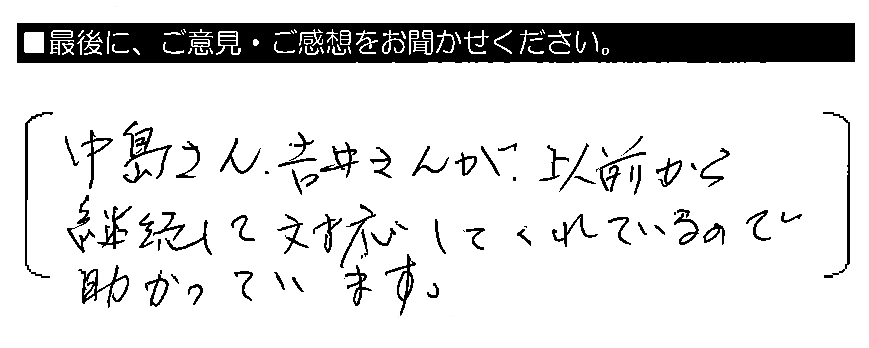 ■最後に、ご意見・ご感想をお聞かせください。
中島さん、吉井さんが、以前から
継続して対応してくれているので
助かっています。